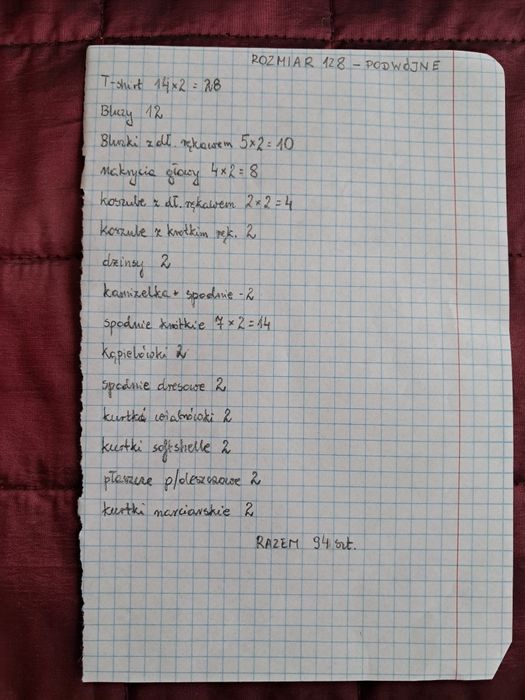 ROZMIAR 128 - PODWÓJNE
T-shirt 14×2 = 28
Bluzy 12
Bluzki z dł. rękawem 5×2 = 10
nakrycia głowy 4×2 = 8
koszule z dł. rękawem 2×2 = 4
koszule z krótkim ręk. 2
dżinsy 2
kamizelka + spodnie - 2
spodnie krótkie 7×2 = 14
kąpielówki 2
spodnie dresowe 2
kurtki wiatrówki 2
kurtki softshelle 2
płaszcze p/deszczowe 2
kurtki narciarskie 2
RAZEM 94 szt.